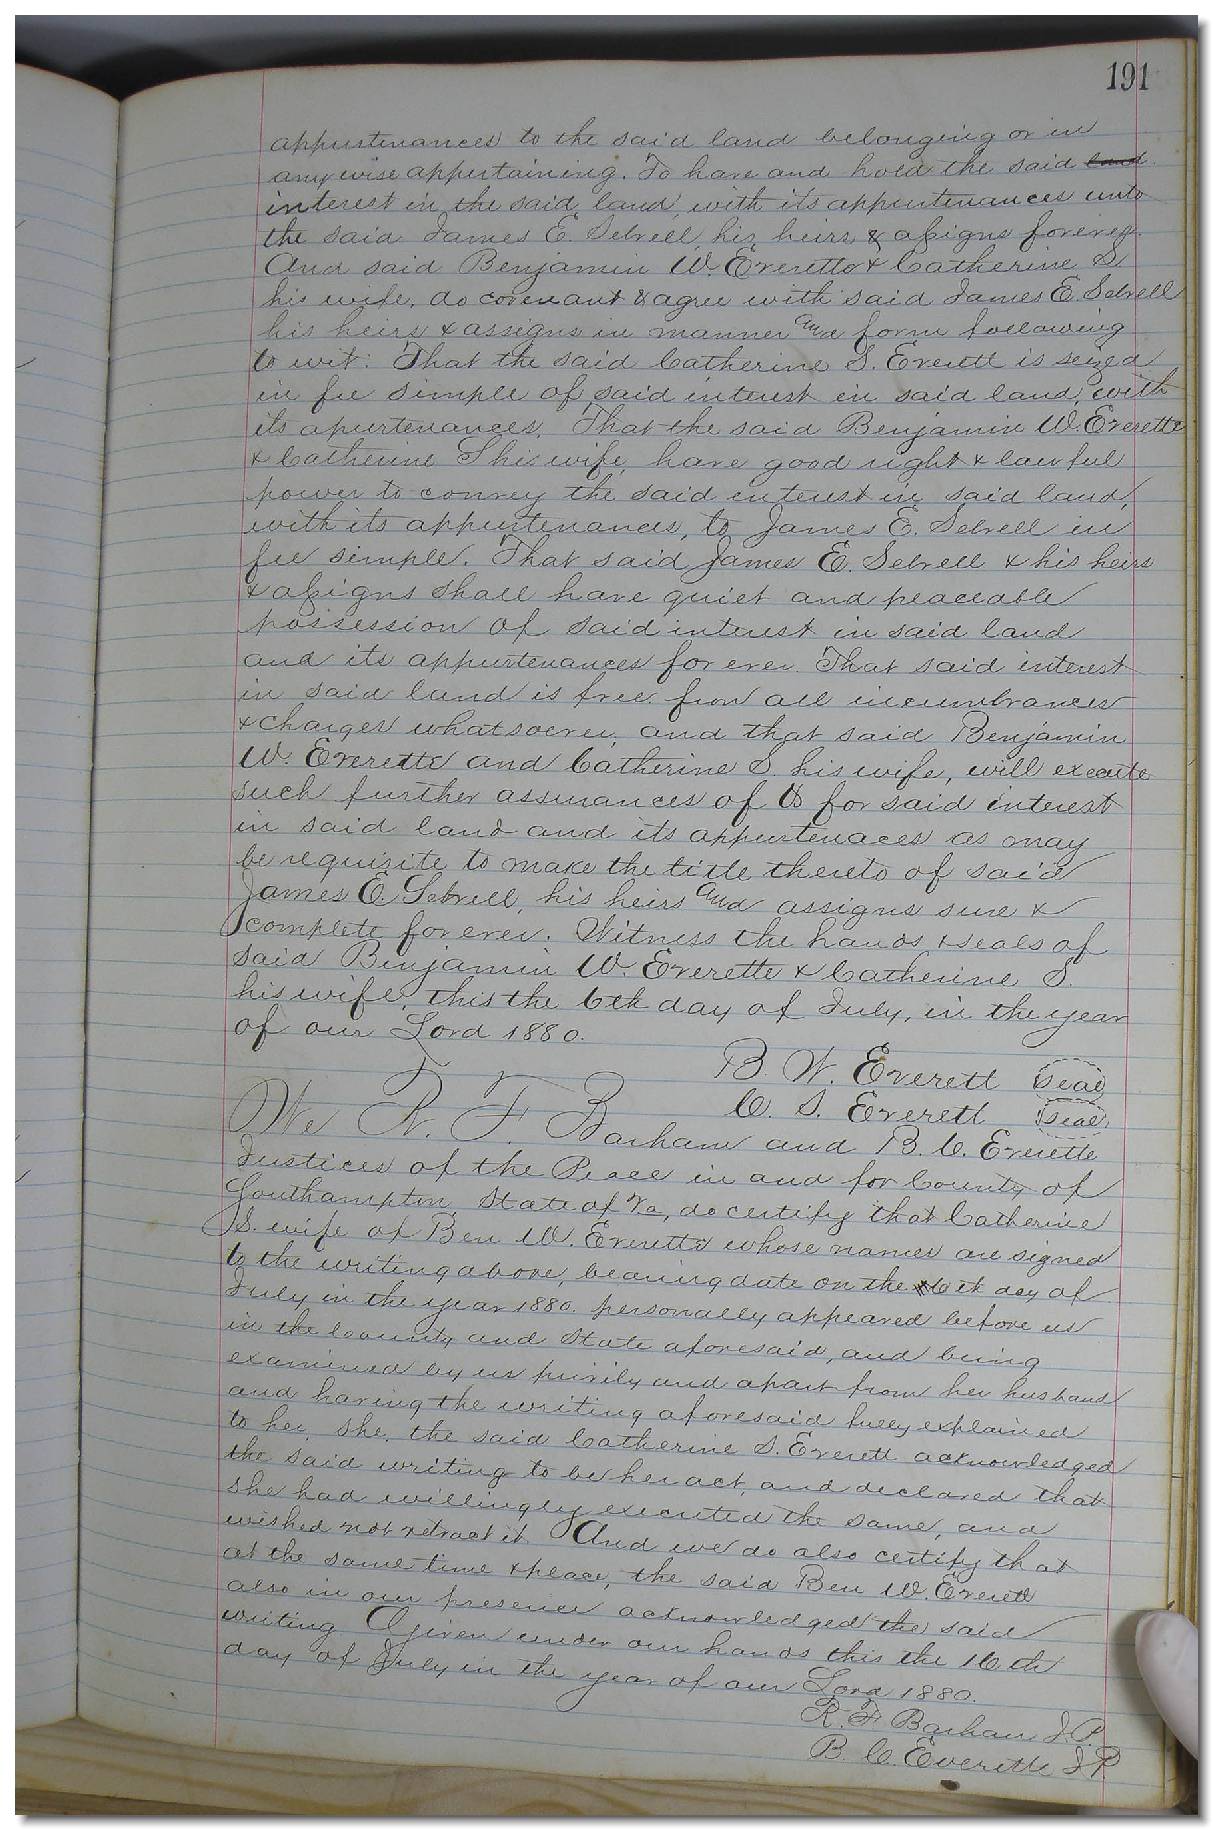 191
appurtenances to the said land belonging or in
any wise appertaining. To have and hold the said land
interest in the said land, with its appurtenances unto
the said James E. Sebrell, his heirs & assigns forever.
And said Benjamin W. Everette & Catherine S.
his wife, do covenant & agree with said James E Sebrell
his heirs & assigns in manner and form following
to wit: That the said Catherine S. Everett is seized
in fee simple of said interest in said land, with
its apurtenances. That the said Benjamin W. Everette
& Catherine S his wife, have good right & lawful
power to convey the said interest in said land,
with its appurtenances, to James E. Sebrell in
fee simple. That said James E. Sebrell & his heirs
& assigns shall have quiet and peaceable
possession of said interest in said land
and its appurtenances for ever. That said interest
in said land is free from all incumbrances
& charges whatsoever, and that said Benjamin
W. Everette and Catherine S. his wife, will execute
such further assurances of to for said interest
in said land and its appurtenaces as may
be requisite to make the title thereto of said
James E. Sebrell, his heirs and assigns sure &
complete forever. Witness the hands & seals of
said Benjamin W. Everette & Catherine S.
his wife, this the 6th day of July, in the year
of our Lord 1880.
B. W. Everett seal
C. S. Everett seal
We R. F. Barham and B. C. Everette
Justices of the Peace in and for County of
Southampton, State of Va, do certify that Catherine
S. wife of Ben W. Everette whose names are signed
to the writing above, bearing date on the 16th day of
July in the year 1880. personally appeared before us
in the County and State aforesaid, and being
examined by us privily and apart from her husband
and having the writing aforesaid fully explained
to her, she, the said Catherine S. Everett acknowledged
the said writing to be her act, and declared that
she had willingly executed the same, and
wished not retract it. And we do also certify that
at the same time & place, the said Ben W. Everett
also in our presence acknowledged the said
writing Given under our hands this the 16th
day of July in the year of our Lord 1880.
R. F Barham J.P.
B. C. Everette J P